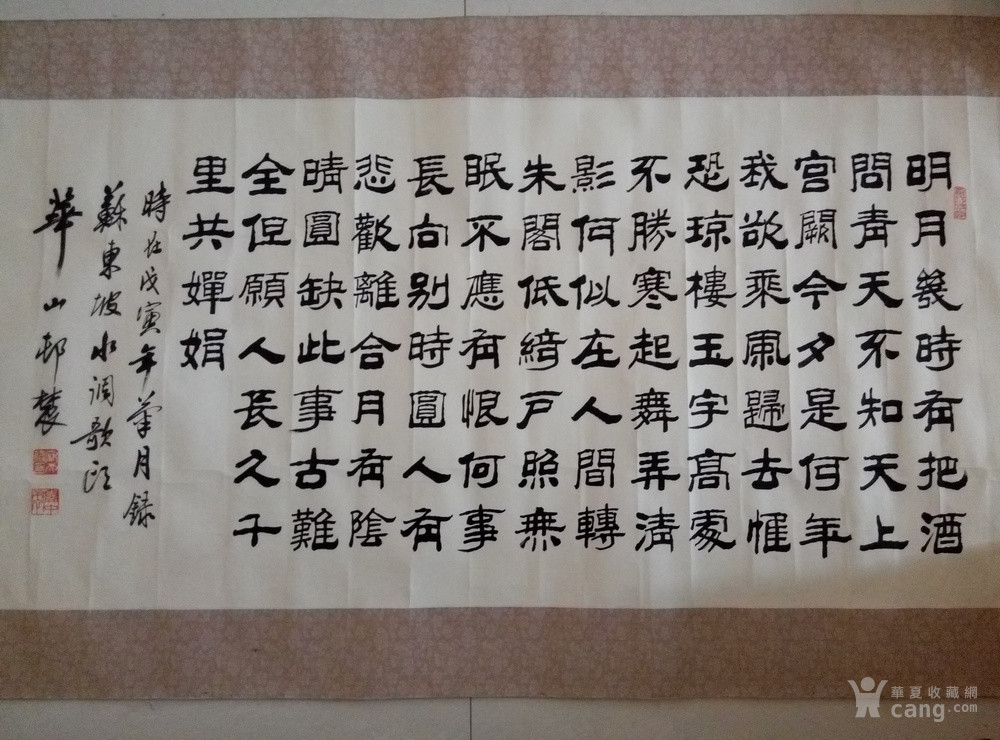 明月幾時有把酒
問青天不知天上
宫闕今夕是何年
我欲乘風歸去惟
恐琼樓玉宇高處
不勝寒起舞弄清
影何似在人間轉
朱閣低綺户照無
眠不應有恨何事
長向别時圓人有
悲歡離合月有陰
晴圓缺此事古難
全但願人長久千
里共嬋娟
時在戊寅年菊月録
蘇東坡水调歌頭
華山邨農
華夏收藏網
cang.com